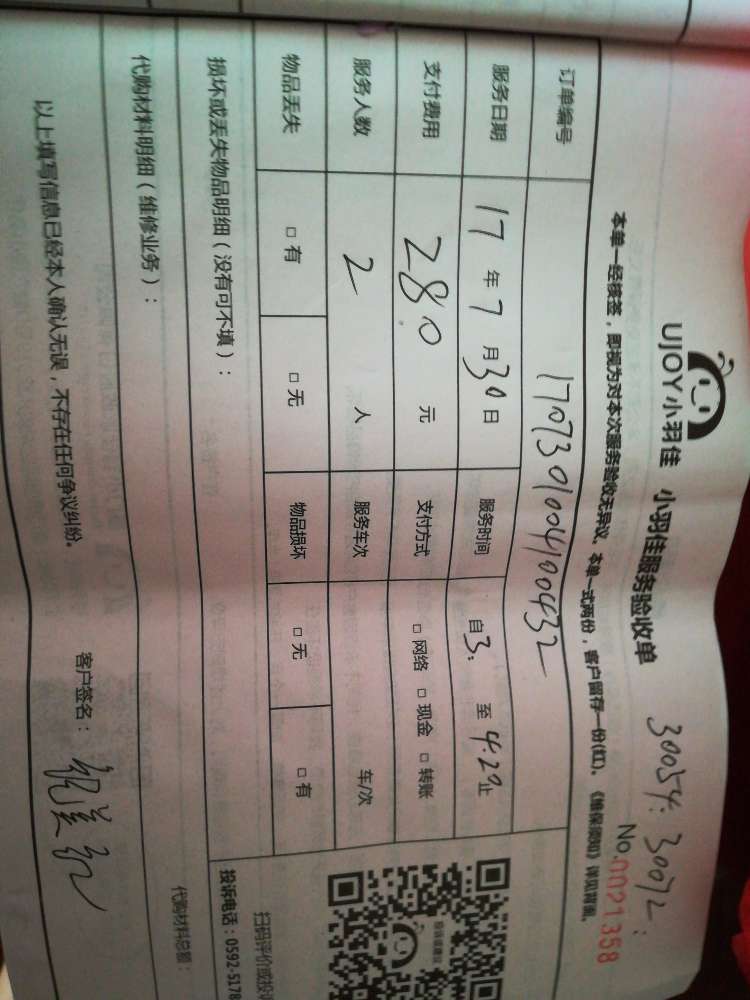 UJOY小羽佳 小羽佳服务验收单 30054: 30072:
No.0021358
本单一经接签，即视为对本次服务验收无异议。本单一式两份，客户留存一份(红)。《维保须知》详见背面。
订单编号 1707301004100432
服务日期 17年7月30日 服务时间 自3: 至4:20止
支付费用 280元 支付方式 □网络 □现金 □转账
服务人数 2人 服务车次 车/次
物品丢失 □有 □无 物品损坏 □无 □有
损坏或丢失物品明细（没有可不填）：
扫码评价或投诉
投诉电话：0592-5178
代购材料明细（维修业务）：
代购材料总额：
以上填写信息已经本人确认无误，不存在任何争议纠纷。
客户签名：